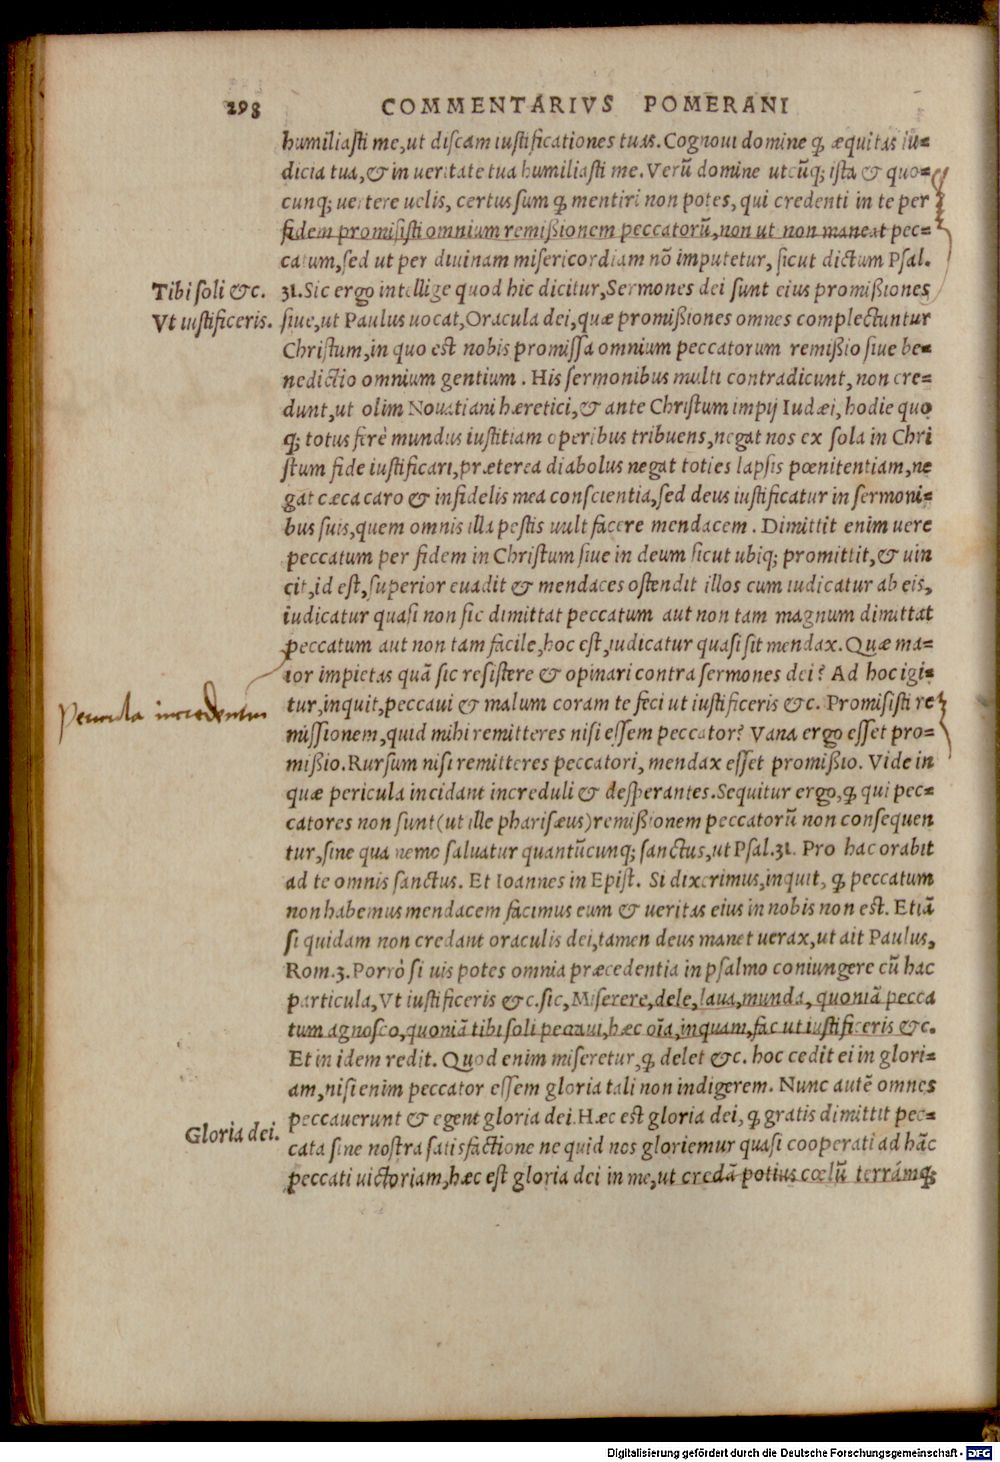 298 COMMENTARIVS POMERANI
humiliasti me, ut discam iustificationes tuas. Cognoui domine ꝙ æquitas iu=
dicia tua, & in ueritate tua humiliasti me. Verũ domine utcũq; ista & quo=
cunq; uertere uelis, certus sum ꝙ mentiri non potes, qui credenti in te per
fidem promisisti omnium remißionem peccatorũ, non ut non maneat pec=
catum, sed ut per diuinam misericordiam nõ imputetur, sicut dictum Psal.
Tibi soli &c. 31. Sic ergo intellige quod hic dicitur, Sermones dei sunt eius promißiones
Vt iustificeris. siue, ut Paulus uocat, Oracula dei, quæ promißiones omnes complectuntur
Christum, in quo est nobis promissa omnium peccatorum remißio siue be=
nedictio omnium gentium. His sermonibus multi contradicunt, non cre=
dunt, ut olim Nouatiani hæretici, & ante Christum impij Iudæi, hodie quo
q; totus ferè mundus iustitiam operibus tribuens, negat nos ex sola in Chri
stum fide iustificari, præterea diabolus negat toties lapsis pœnitentiam, ne
gat cæca caro & infidelis mea conscientia, sed deus iustificatur in sermoni=
bus suis, quem omnis illa pestis uult facere mendacem. Dimittit enim uere
peccatum per fidem in Christum siue in deum sicut ubiq; promittit, & uin
cit, id est, superior euadit & mendaces ostendit illos cum iudicatur ab eis,
iudicatur quasi non sic dimittat peccatum aut non tam magnum dimittat
peccatum aut non tam facile, hoc est, iudicatur quasi sit mendax. Quæ ma=
ior impietas quã sic resistere & opinari contra sermones dei? Ad hoc igi=
tur, inquit, peccaui & malum coram te feci ut iustificeris &c. Promisisti re
missionem, quid mihi remitteres nisi essem peccator? Vana ergo esset pro=
mißio. Rursum nisi remitteres peccatori, mendax esset promißio. Vide in
quæ pericula incidant increduli & desperantes. Sequitur ergo, ꝙ qui pec=
catores non sunt (ut ille pharisæus) remißionem peccatorũ non consequen
tur, sine qua nemo saluatur quantũcunq; sanctus, ut Psal. 31. Pro hac orabit
ad te omnis sanctus. Et Ioannes in Epist. Si dixerimus, inquit, ꝙ peccatum
non habemus mendacem facimus eum & ueritas eius in nobis non est. Etiã
si quidam non credant oraculis dei, tamen deus manet uerax, ut ait Paulus,
Rom. 3. Porrò si uis potes omnia præcedentia in psalmo coniungere cũ hac
particula, Vt iustificeris &c. sic, Miserere, dele, laua, munda, quoniã pecca
tum agnosco, quoniã tibi soli peccaui, hæc oĩa, inquam, fac ut iustificeris &c.
Et in idem redit. Quod enim miseretur, ꝙ delet &c. hoc cedit ei in glori=
am, nisi enim peccator essem gloria tali non indigerem. Nunc autẽ omnes
peccauerunt & egent gloria dei. Hæc est gloria dei, ꝙ gratis dimittit pec=
Gloria dei. cata sine nostra satisfactione ne quid nos gloriemur quasi cooperati ad hãc
peccati uictoriam, hæc est gloria dei in me, ut credã potius cœlũ terrámq;
Digitalisierung gefördert durch die Deutsche Forschungsgemeinschaft - DFG